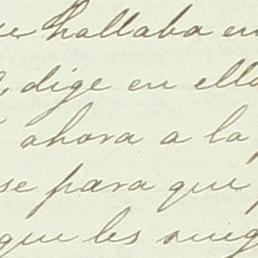 ue hallaba en
, dige en ella
ahora a la
se para que
que les rueg